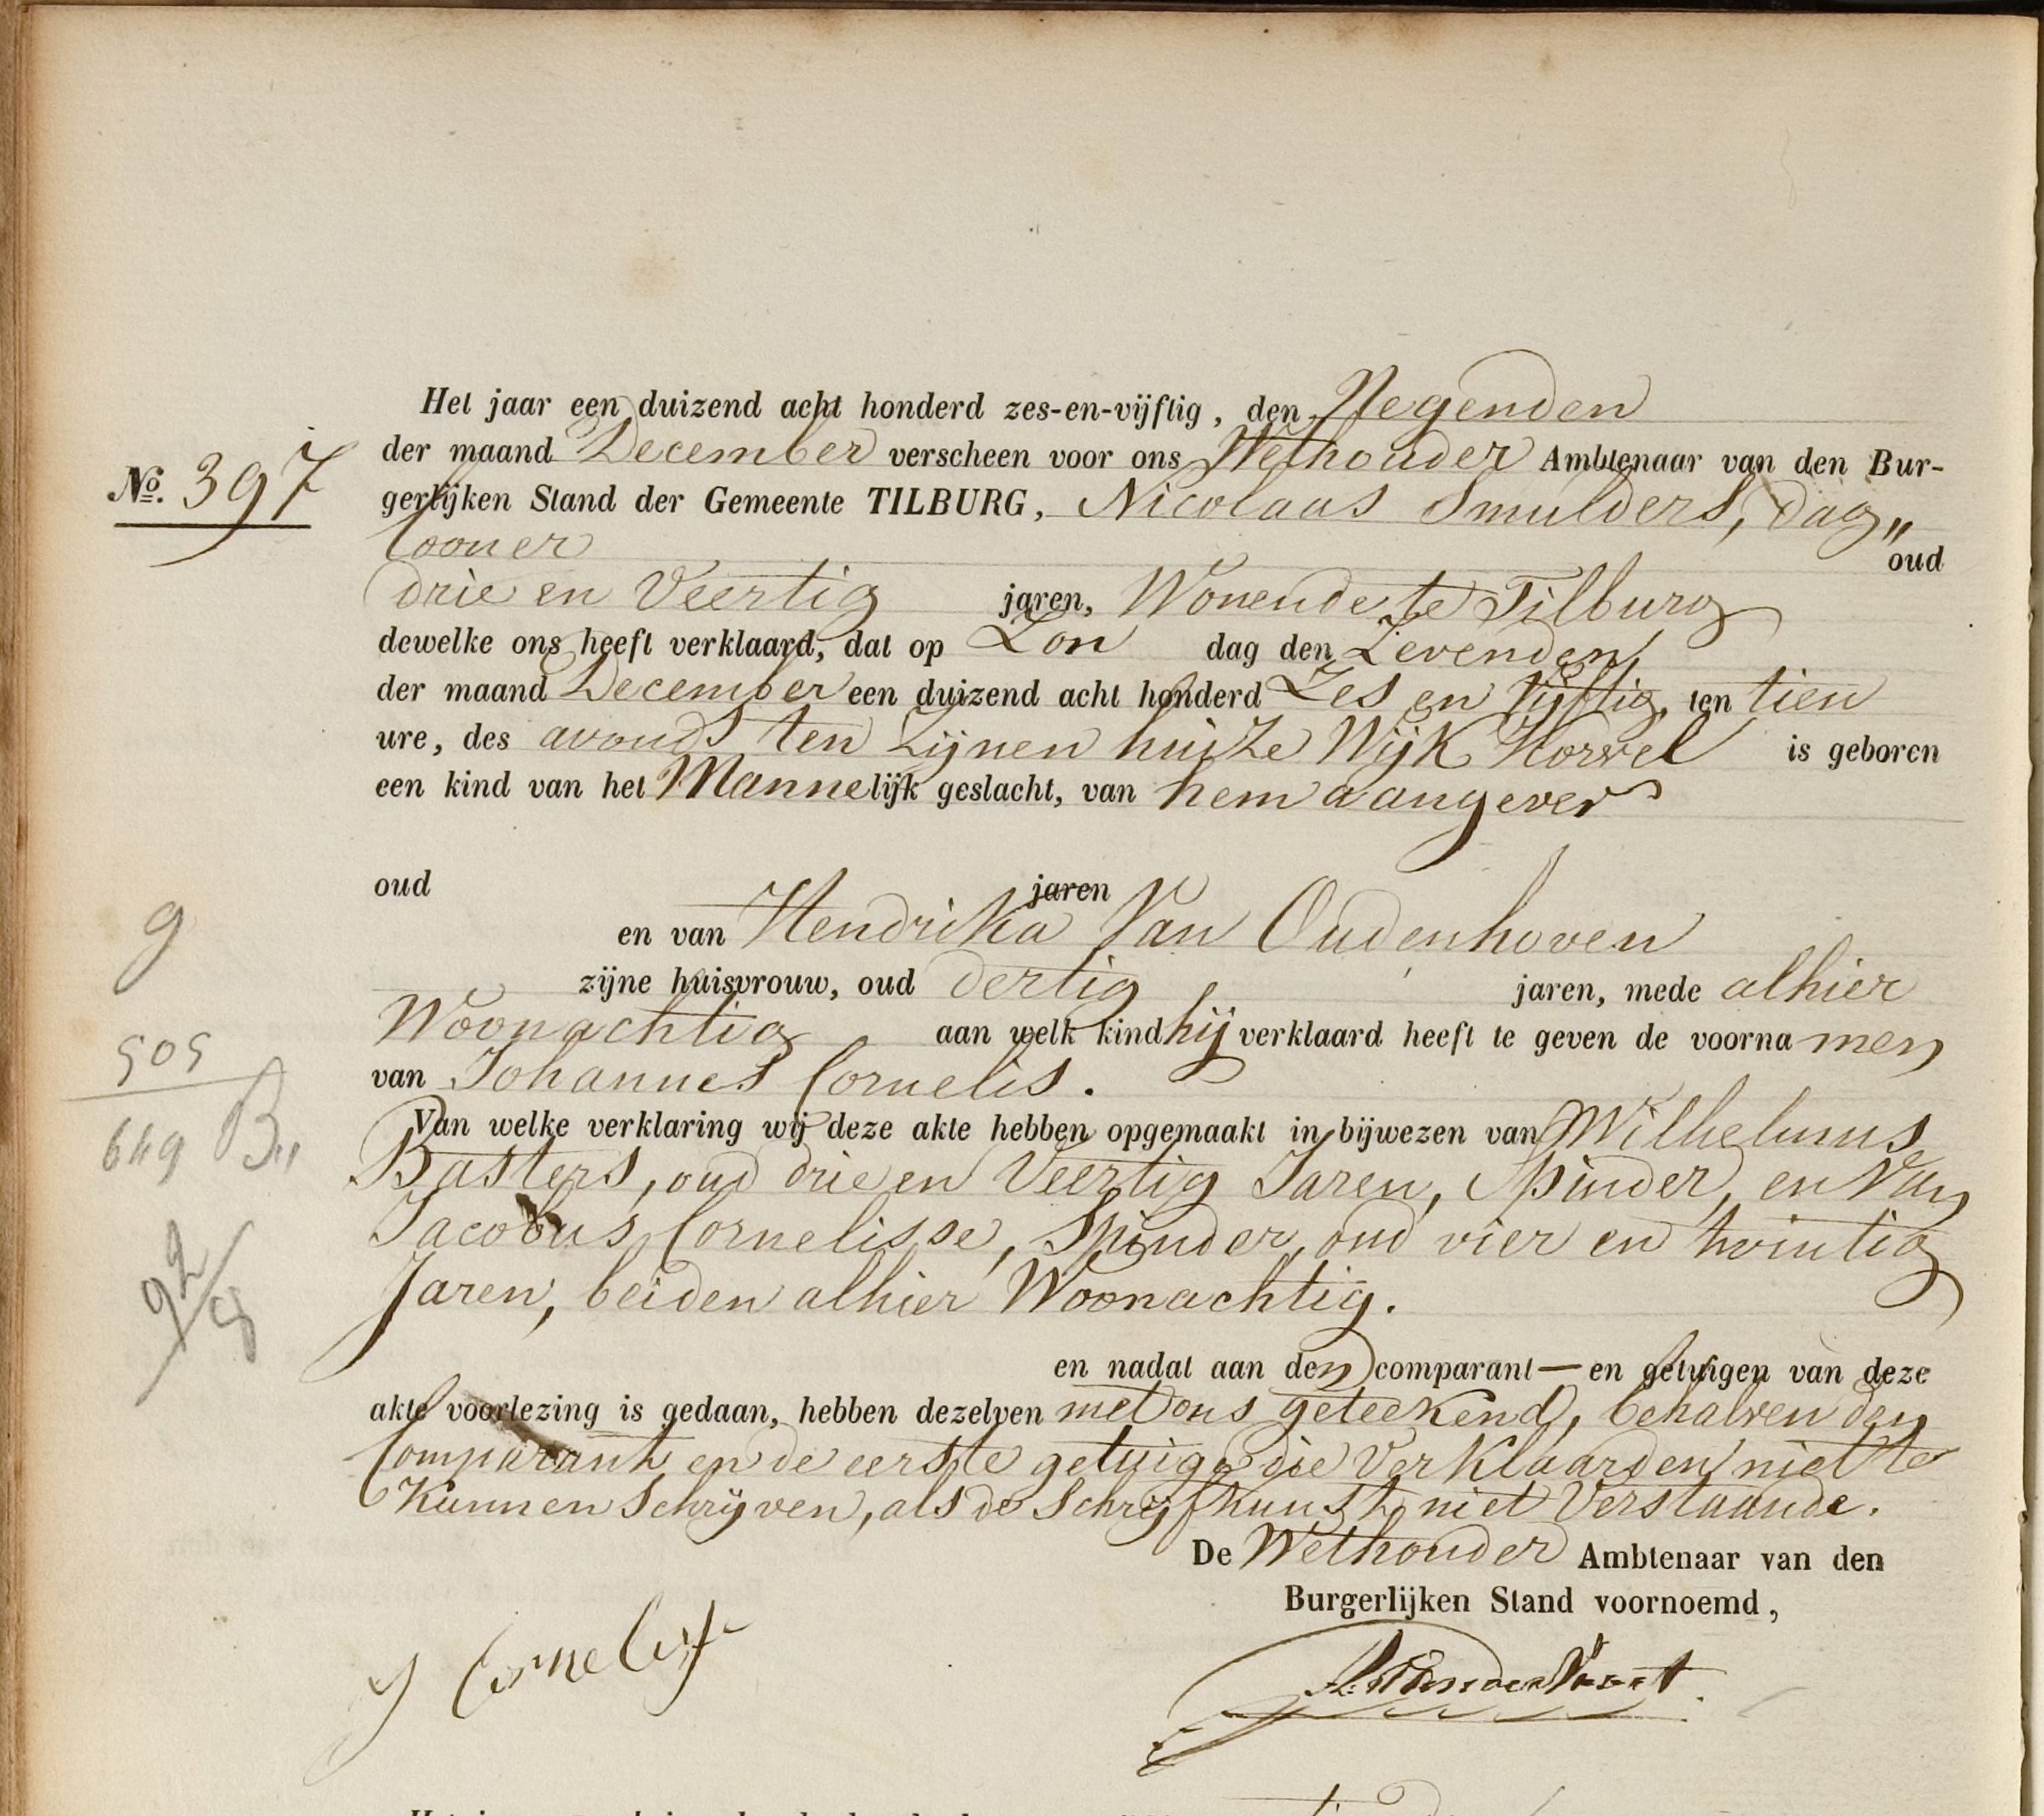 Het jaar een duizend acht honderd zes-en-vijftig, den Negenden
der maand December verscheen voor ons Wethouder Ambtenaar van den Bur-
No. 397
gerlijken Stand der Gemeente TILBURG, Nicolaas Smulders, dag„
looner
oud
drie en Veertig jaren, Wonende te Tilburg
dewelke ons heeft verklaard, dat op Zon dag den Zevenden
der maand December een duizend acht honderd Zes en Vijftig, ten tien
ure, des avonds ten Zijnen huize Wijk Korvel is geboren
een kind van het Mannelijk geslacht, van hem aangever
oud jaren
en van Hendrika Van Oudenhoven
9
zijne huisvrouw, oud dertig jaren, mede alhier
Woonachtig aan welk kind hij verklaard heeft te geven de voornamen
505
van Johannes Cornelis.
649 B„
Van welke verklaring wij deze akte hebben opgemaakt in bijwezen van Wilhelmus
Basters, oud drie en Veertig Jaren, Spinder, en Van
Jacobus Cornelisse, Spinder, oud vier en twintig
Jaren, beiden alhier Woonachtig.
en nadat aan den comparant — en getuigen van deze
akte voorlezing is gedaan, hebben dezelven met ons geteekend, behalven den
Comparant en de eerste getuige die Verklaarden niet te
Kunnen Schrijven, als de Schrijfkunst niet Verstaande.
De Wethouder Ambtenaar van den
Burgerlijken Stand voornoemd,
J Cornelisse